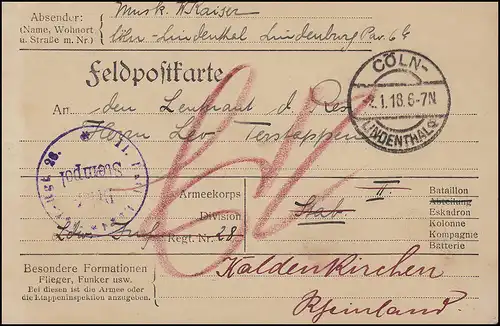 Absender: Musk. W Kaiser
(Name, Wohnort
u. Straße m. Nr.) Cöln-Lindenthal Lindenburg Pav. 6
Feldpostkarte
CÖLN-
1.18.6-7N
LINDENTHAL
An den Leutnant d Res
Herrn Leo Terstappen
Stempel
Armeekorps
Division
Regt. Nr. 28
Stab II.
Bataillon
Abteilung
Eskadron
Kolonne
Kompagnie
Batterie
Besondere Formationen
Flieger, Funker usw.
Bei diesen ist die Armee oder
die Etappeninspektion anzugeben.
Kaldenkirchen
Rheinland.